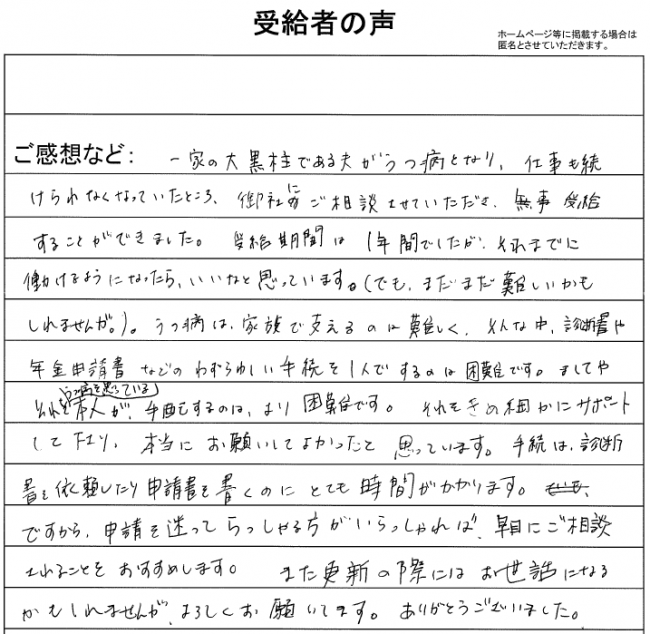 受給者の声
ホームページ等に掲載する場合は
匿名とさせていただきます。
ご感想など： 一家の大黒柱である夫がうつ病となり、仕事も続
けられなくなっていたところ、御社にご相談させていただき、無事受給
することができました。受給期間は1年間でしたが、それまでに
働けるようになったら、いいなと思っています。(でも、まだまだ難しいかも
しれませんが。)。うつ病は、家族で支えるのは難しく、そんな中、診断書や
年金申請書などのわずらわしい手続を1人でするのは困難です。ましてや
それをうつ病を患っている本人が、手配するのは、より困難です。それをきめ細かにサポート
して下さり、本当にお願いしてよかったと思っています。手続は、診断
書を依頼したり申請書を書くのにとても時間がかかります。
ですから、申請を迷ってらっしゃる方がいらっしゃれば、早目にご相談
されることをおすすめします。また更新の際にはお世話になる
かもしれませんが、よろしくお願いします。ありがとうございました。